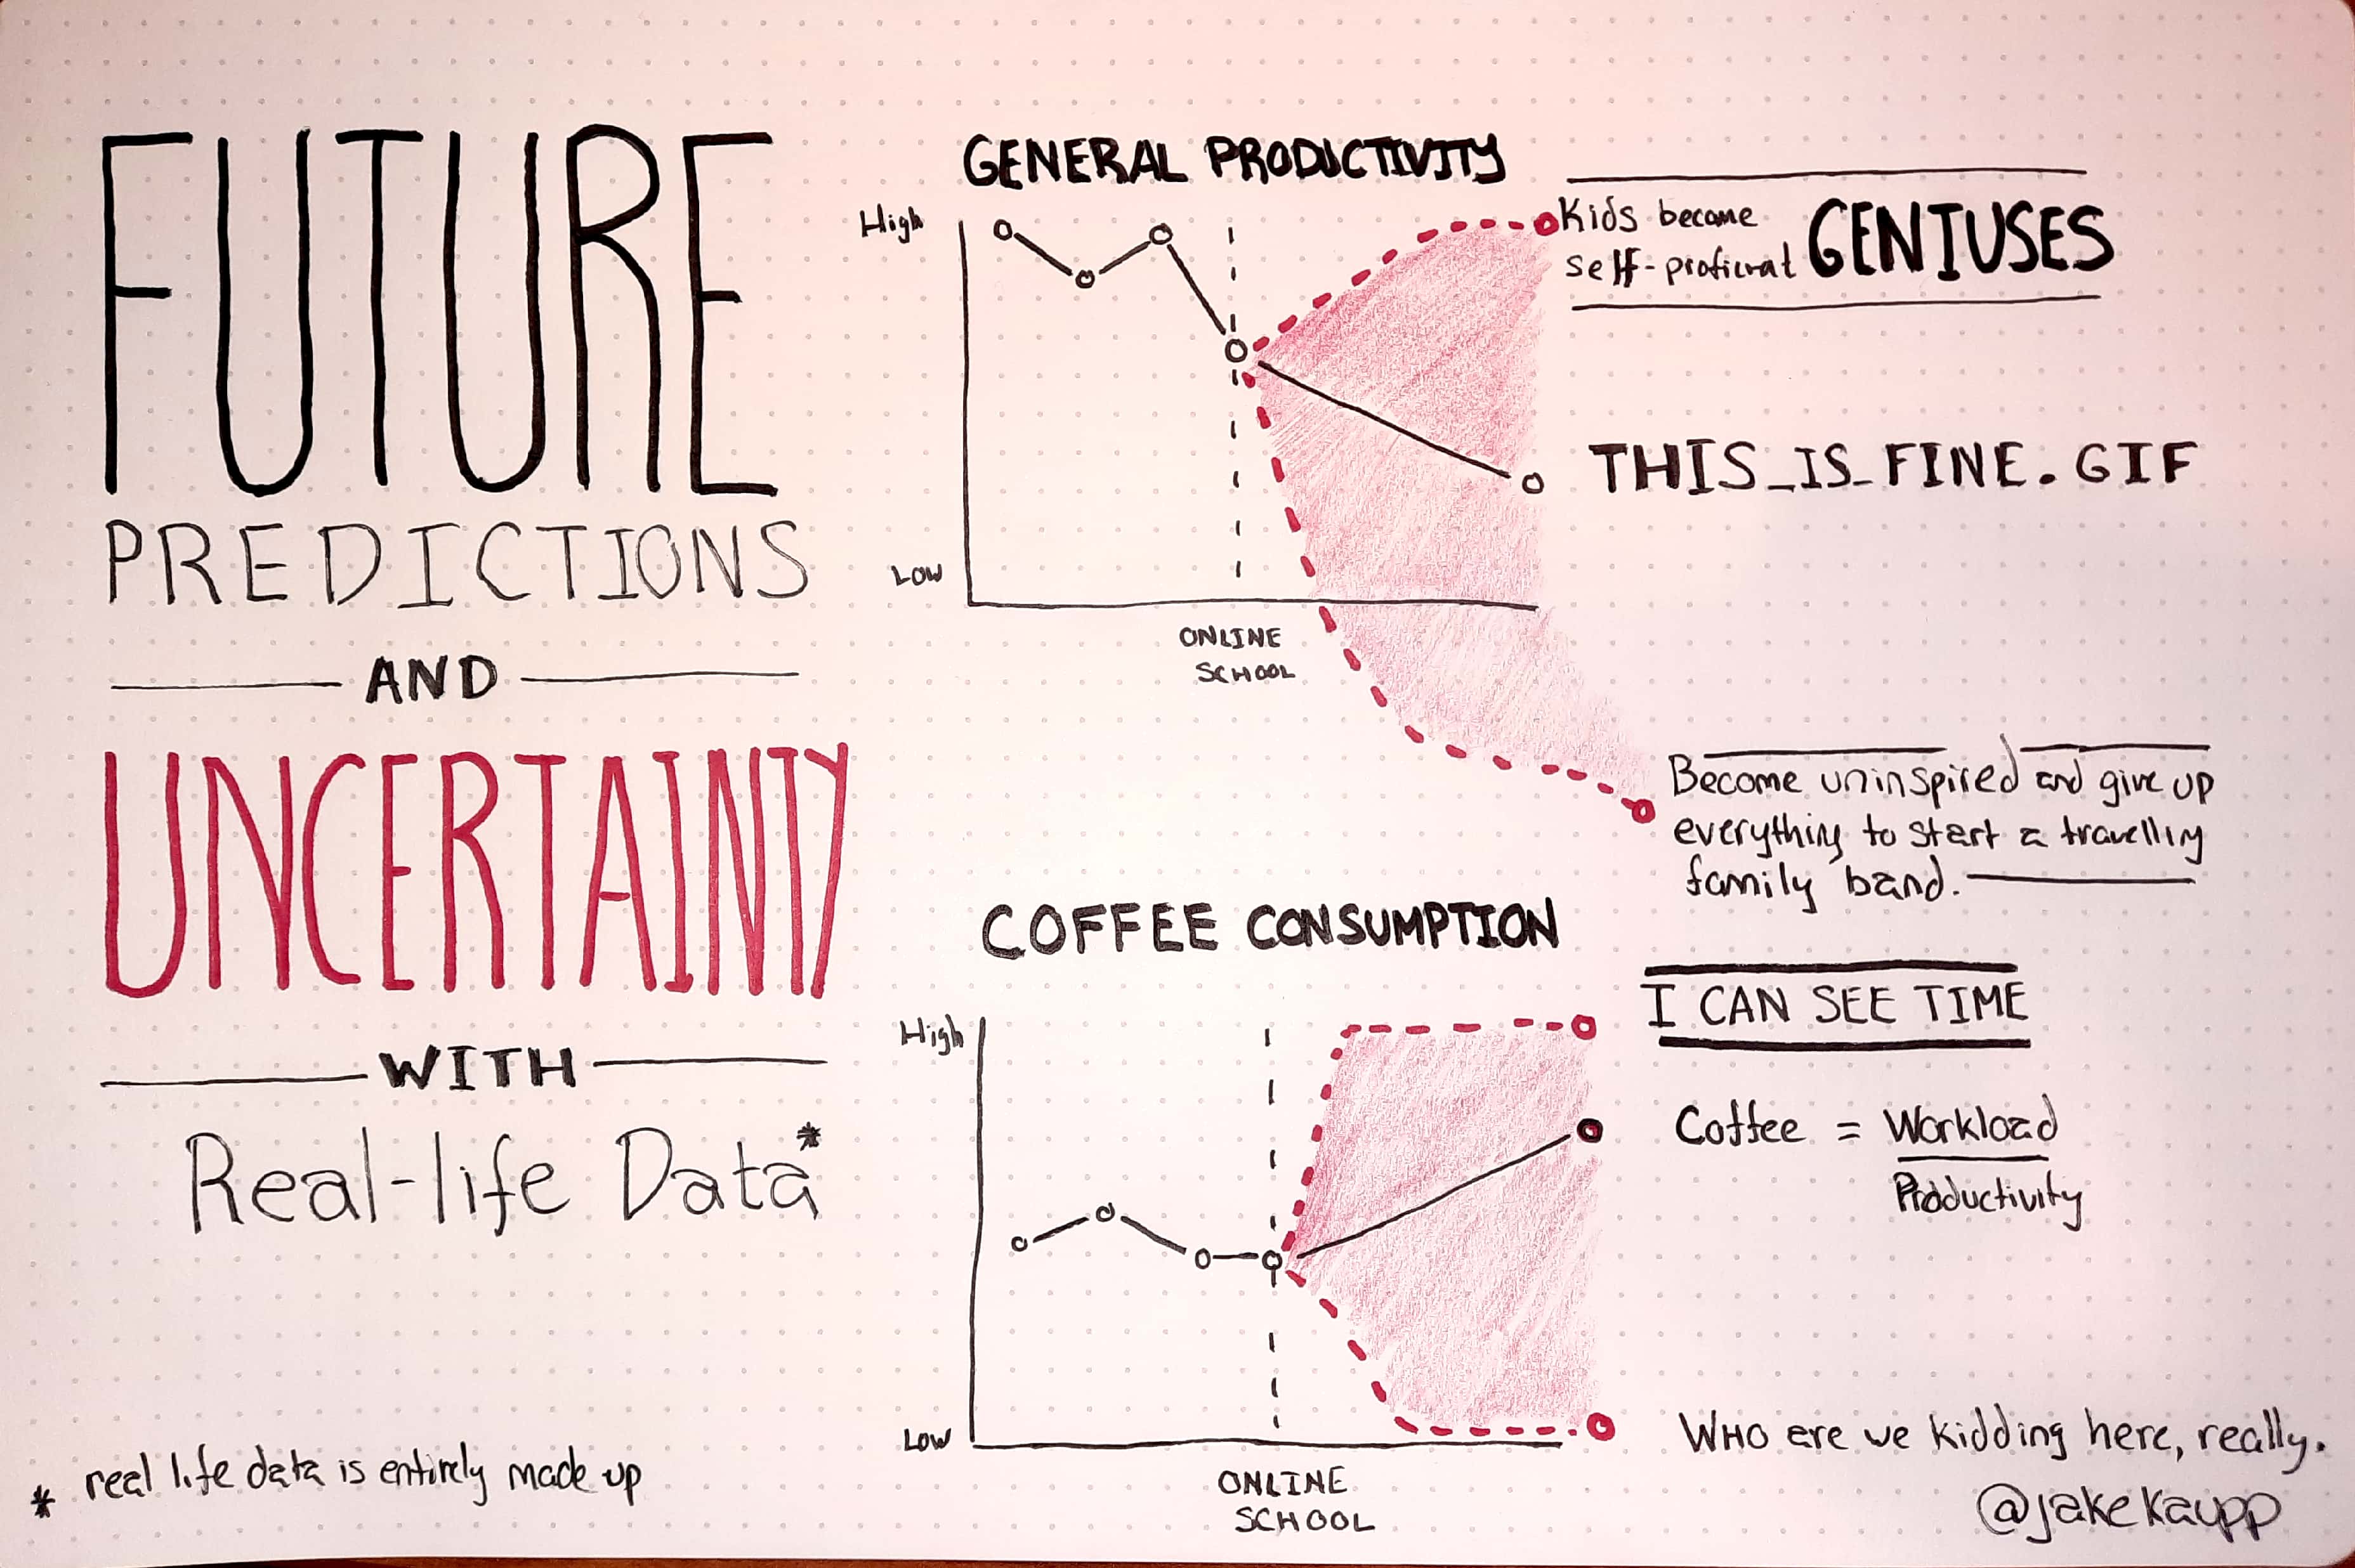 FUTURE
PREDICTIONS
AND
UNCERTAINTY
WITH
Real-life Data*
* real life data is entirely made up
GENERAL PRODUCTIVITY
High
Low
ONLINE
SCHOOL
Kids become
self-proficient GENIUSES
THIS_IS_FINE.GIF
Become uninspired and give up
everything to start a travelling
family band.
COFFEE CONSUMPTION
High
Low
ONLINE
SCHOOL
I CAN SEE TIME
Coffee = Workload
Productivity
WHO are we kidding here, really.
@jakekaupp